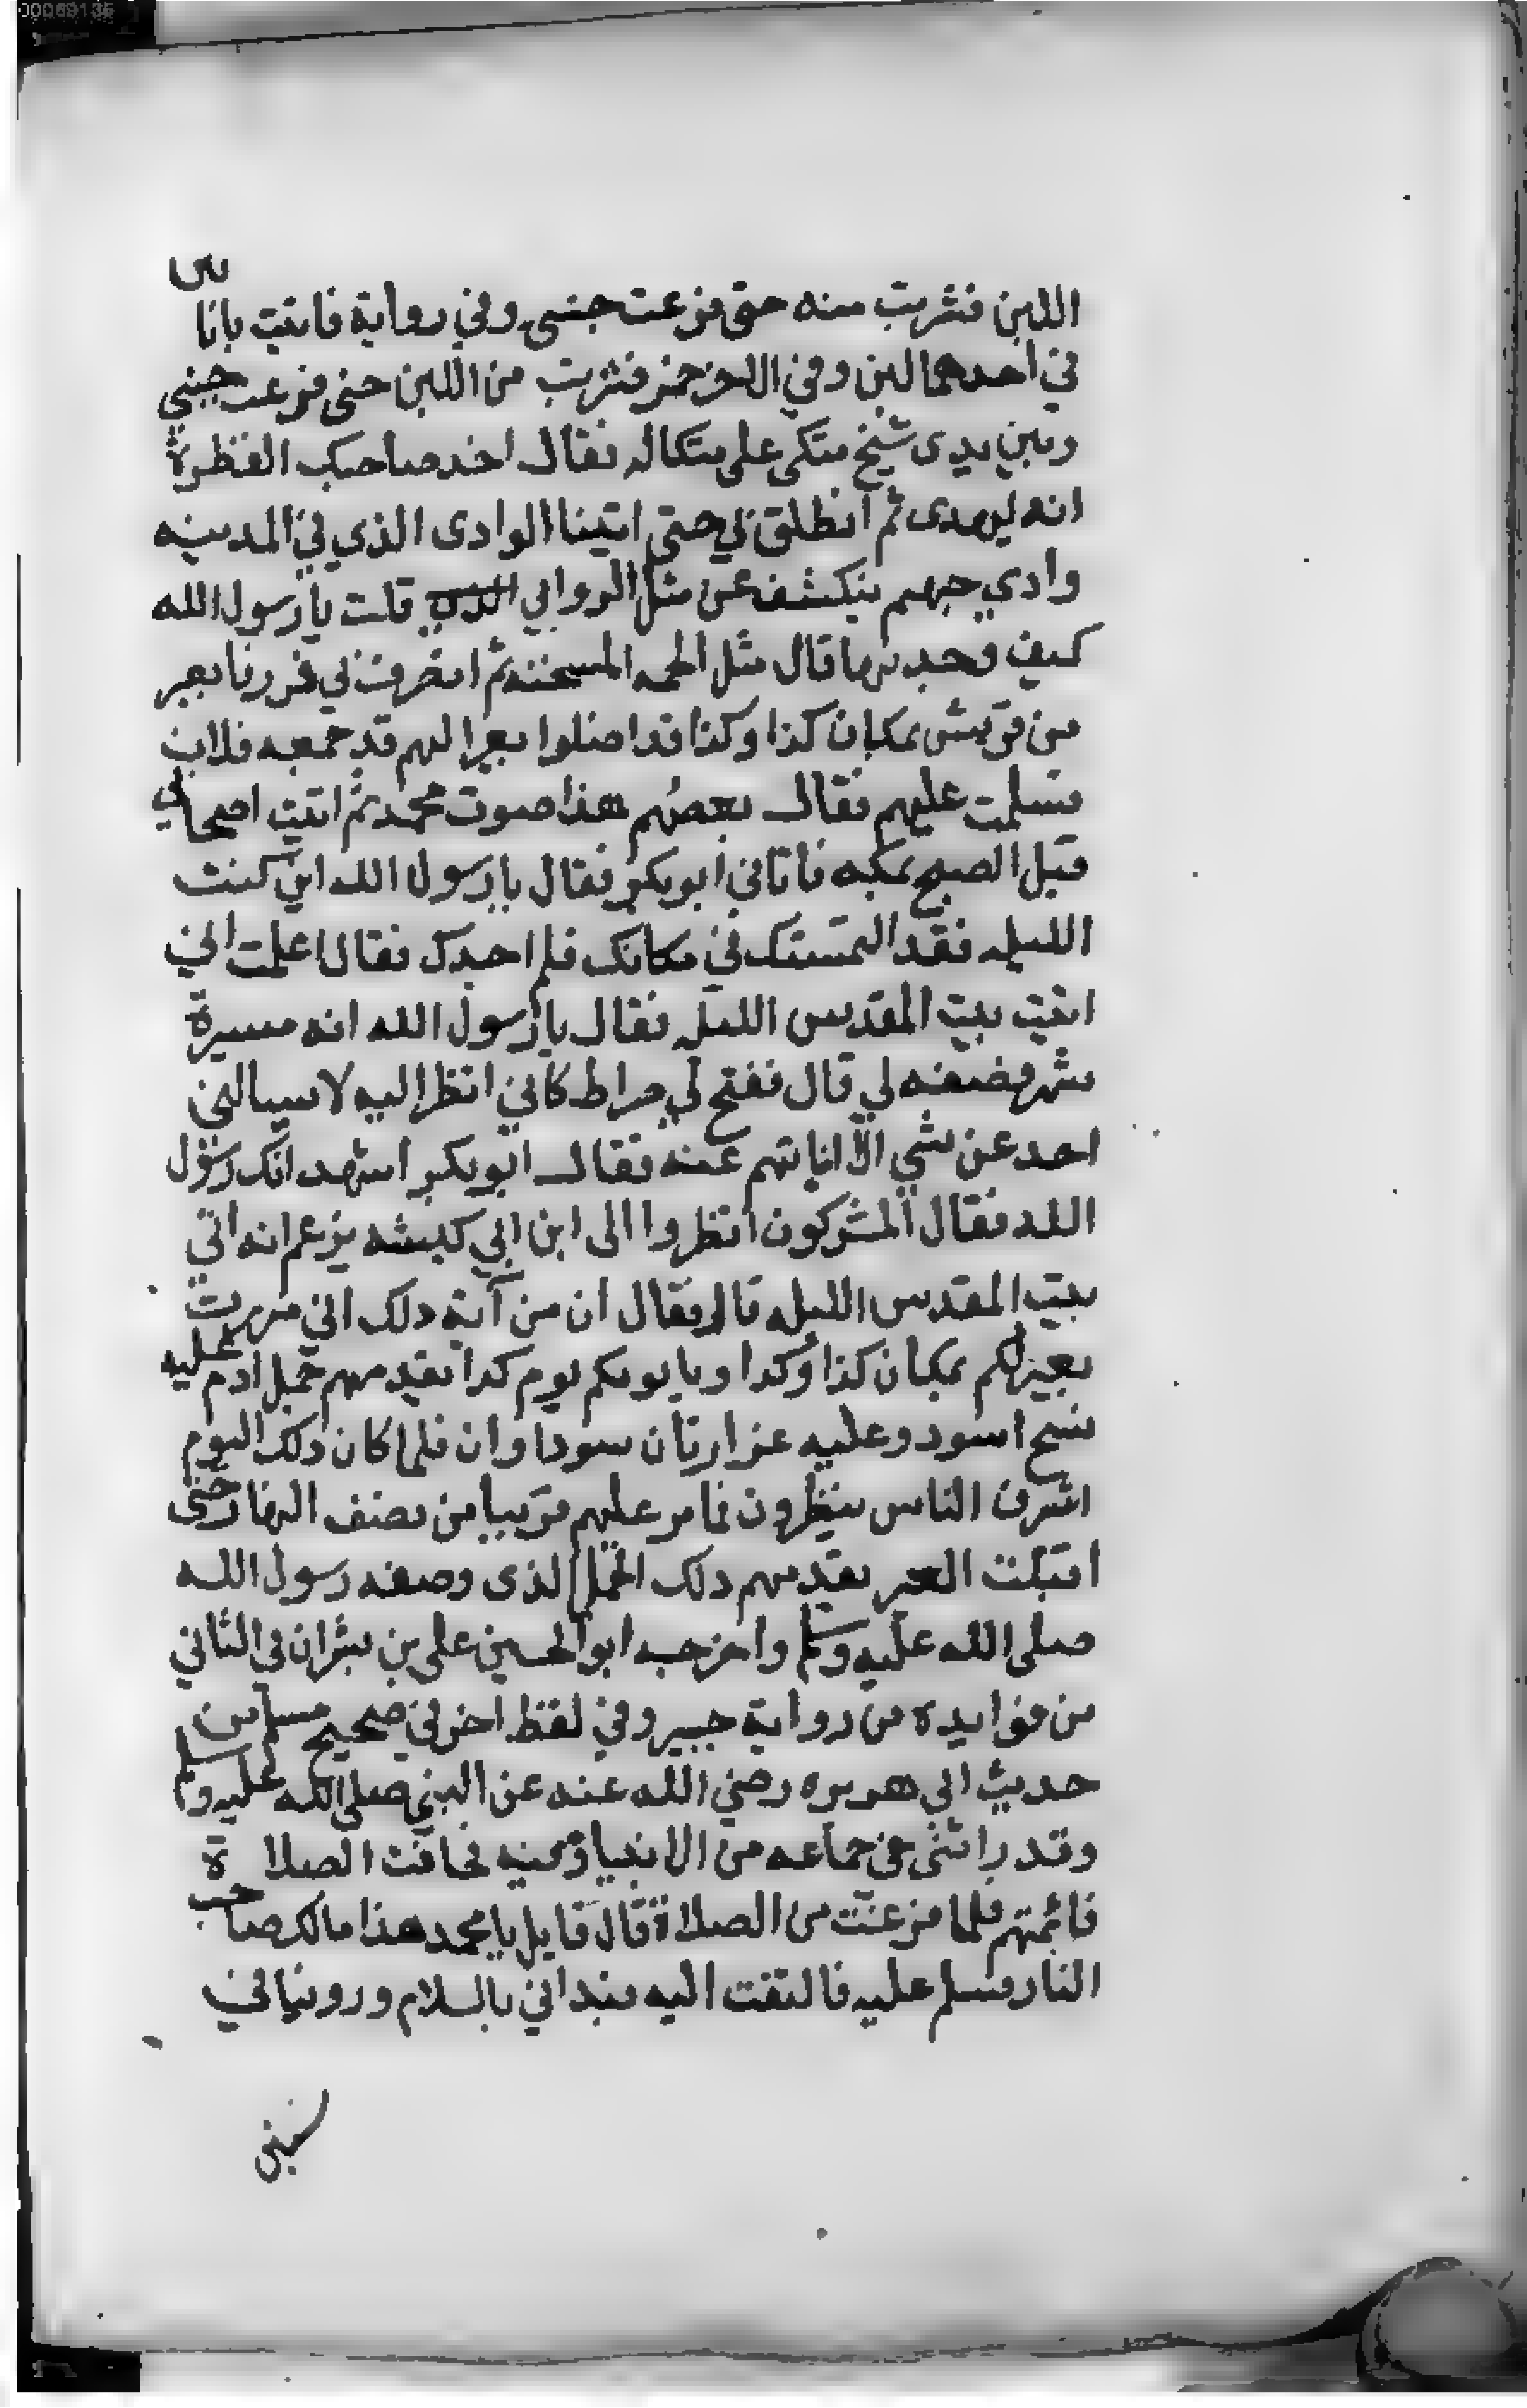 اللبن فشربت منه حتى فرعت جنبى وفي رواية فاتيت بانا ين
في احدهما لبن وفي الاخر خمر فشربت من اللبن حتى فرعت جبيني
وبين يدى شيخ متكى على متكا له فقال اخذ صاحبك الفطرة
انه ليهدى ثم انطلق بي حتى اتينا الوادى الذي في المدينه
وادي جهنم ينكشف عن مثل الروابي قلت يا رسول الله
كيف وجدتها قال مثل الحمه المسخنه ثم انصرفت بي فمررنا بعير
من قريش بمكان كذا وكذا قد اضلوا بعيرا لهم قد جمعه فلان
فسلمت عليهم فقال بعضهم هذا صوت محمد ثم اتيت اصحابي
قبل الصبح بمكه فاتاني ابو بكر فقال يا رسول الله اين كنت
الليله فقد التمستك في مكانك فلم اجدك فقال اعلمت اني
اتيت بيت المقدس الليله فقال يا رسول الله انه مسيرة
شهر فصفه لي قال ففتح لي صراط كاني انظر اليه لا يسالني
احد عن شي الا انباتهم عنه فقال ابو بكر اشهد انك رسول
الله فقال المشركون انظروا الى ابن ابي كبشه يزعم انه اتى
بيت المقدس الليله قال فقال ان من آية ذلك اني مررت
بعير لكم بمكان كذا وكذا وياتوتكم يوم كذا يقدمهم جمل ادم عليه
مسح اسود وعليه غرارتان سوداوان فلما كان ذلك اليوم
اشرف الناس ينظرون فما مر عليهم قريبا من نصف النهار حتى
اقبلت العير يقدمهم ذلك الجمل الذى وصفه رسول الله
صلى الله عليه وسلم واخرجه ابو الحسين على بن بشران في الثاني
من فوايده من رواية جبير وفي لفظ اخر في صحيح مسلم من
حديث ابي هريره رضي الله عنه عن النبي صلى الله عليه وسلم
وقد رايتنى في جماعه من الانبيا وفيه فحانت الصلاة
فاممتهم فلما فرغت من الصلاة قال قايل يا محمد هذا مالك صاحب
النار فسلم عليه فالتفت اليه فبداني بالسلام وروينا في